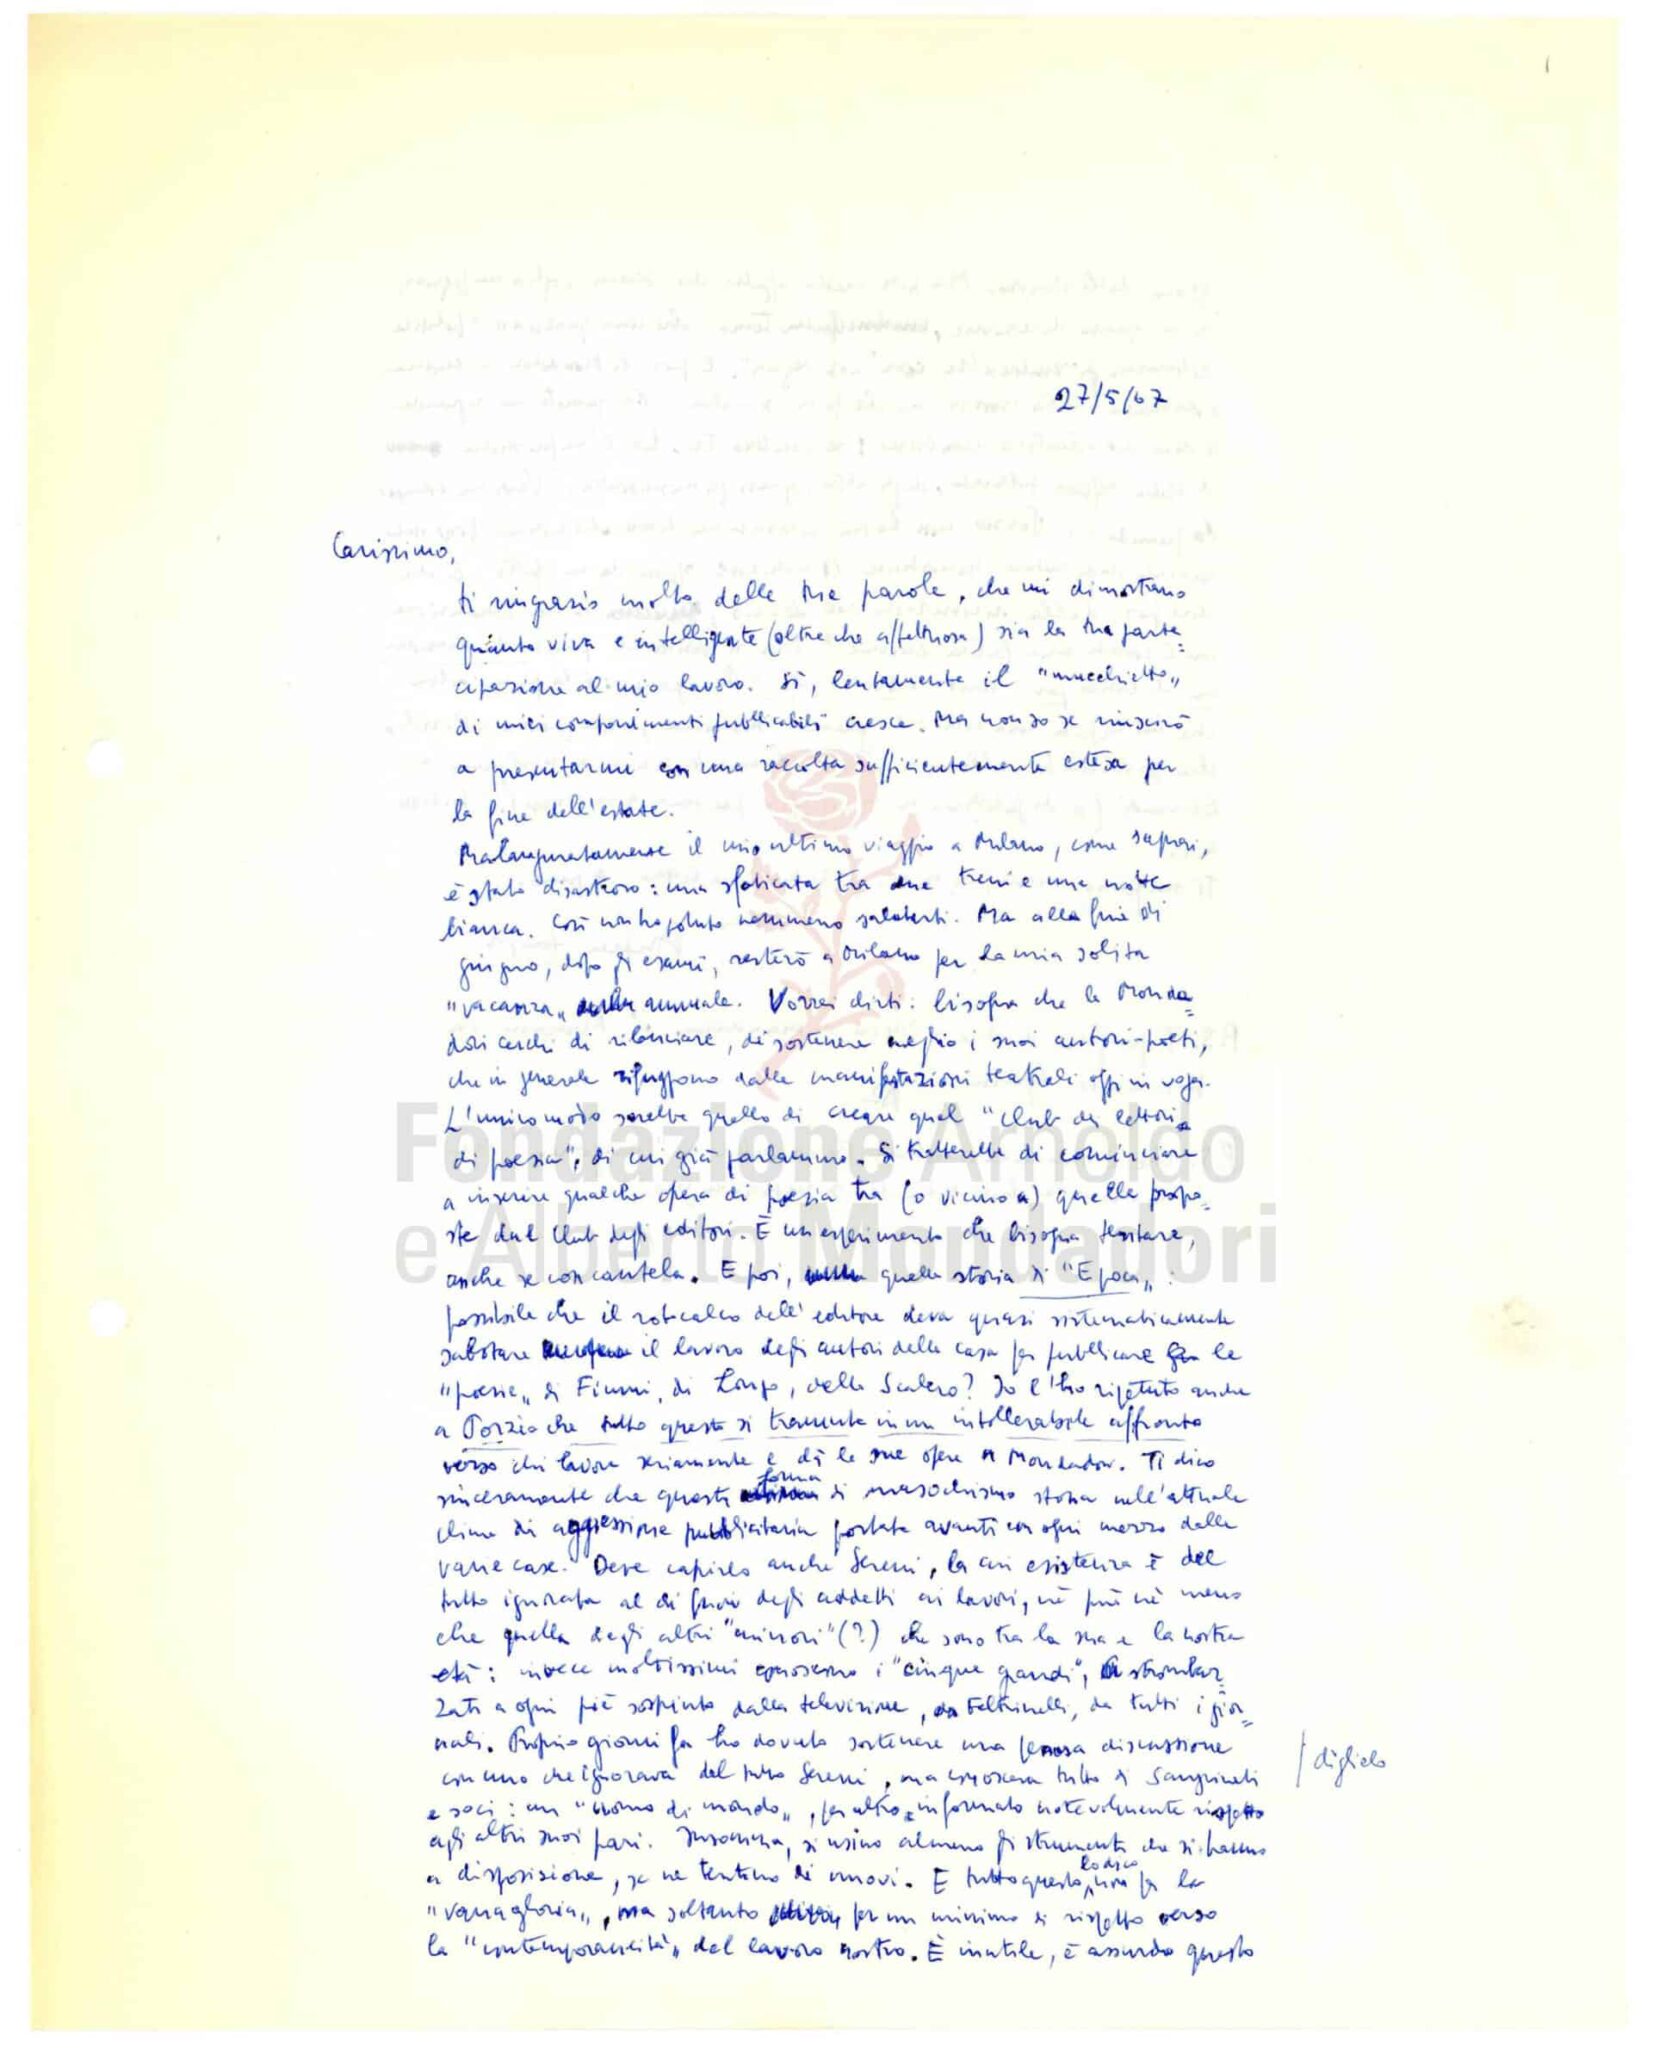 27/5/67
Carissimo,
ti ringrazio molto delle tue parole, che mi dimostrano
quanto viva e intelligente (oltre che affettuosa) sia la tua parte=
cipazione al mio lavoro. Sì, lentamente il "mucchietto"
di miei componimenti pubblicabili cresce. Ma non so se riuscirò
a presentarmi con una raccolta sufficientemente estesa per
la fine dell'estate.
Malauguratamente il mio ultimo viaggio a Milano, come saprai,
è stato disastroso: una sfaticata tra due treni e una notte
bianca. Così non ho potuto nemmeno salutarti. Ma alla fine di
giugno, dopo gli esami, resterò a Milano per la mia solita
"vacanza" annuale. Vorrei dirti: bisogna che la Monda=
dori cerchi di rilanciare, di sostenere meglio i suoi autori-poeti,
che in generale rifuggono dalle manifestazioni teatrali oggi in voga.
L'unico modo sarebbe quello di creare quel "Club dei lettori
di poesia", di cui già parlammo. Si tratterebbe di cominciare
a inserire qualche opera di poesia tra (o vicino a) quelle propo=
ste dal Club degli editori. È un esperimento che bisogna tentare,
anche se con cautela. E poi, quella storia di "Epoca":
possibile che il rotocalco dell'editore deva quasi sistematicamente
sabotare il lavoro degli autori della casa per pubblicare le
"poesie" di Fiumi, di Longo, della Scalero? Io l'ho ripetuto anche
a Porzio che tutto questo si tramuta in un intollerabile affronto
verso chi lavora seriamente e dà le sue opere a Mondadori. Ti dico
sinceramente che questa forma di masochismo stona nell'attuale
clima di aggressione pubblicitaria portata avanti con ogni mezzo dalle
varie case. Deve capirlo anche Sereni, la cui esistenza è del
tutto ignorata al di fuori degli addetti ai lavori, nè più nè meno
che quella degli altri "minori" (?) che sono tra la sua e la nostra
età: invece moltissimi conoscono i "cinque grandi", strombaz=
zati a ogni piè sospinto dalla televisione, da Feltrinelli, da tutti i gior=
nali. Proprio giorni fa ho dovuto sostenere una penosa discussione
con uno che ignorava del tutto Sereni, ma conosceva tutto di Sanguineti
/ diglielo
e soci: un "uomo di mondo", per altro informato notevolmente rispetto
agli altri suoi pari. Insomma, si usino almeno gli strumenti che si hanno
a disposizione, se ne tentino di nuovi. E tutto questo, lo dico non per la
"vanagloria", ma soltanto per un minimo di rispetto verso
la "contemporaneità" del lavoro nostro. È inutile, è assurdo questo
Fondazione Arnoldo
e Alberto Mondadori